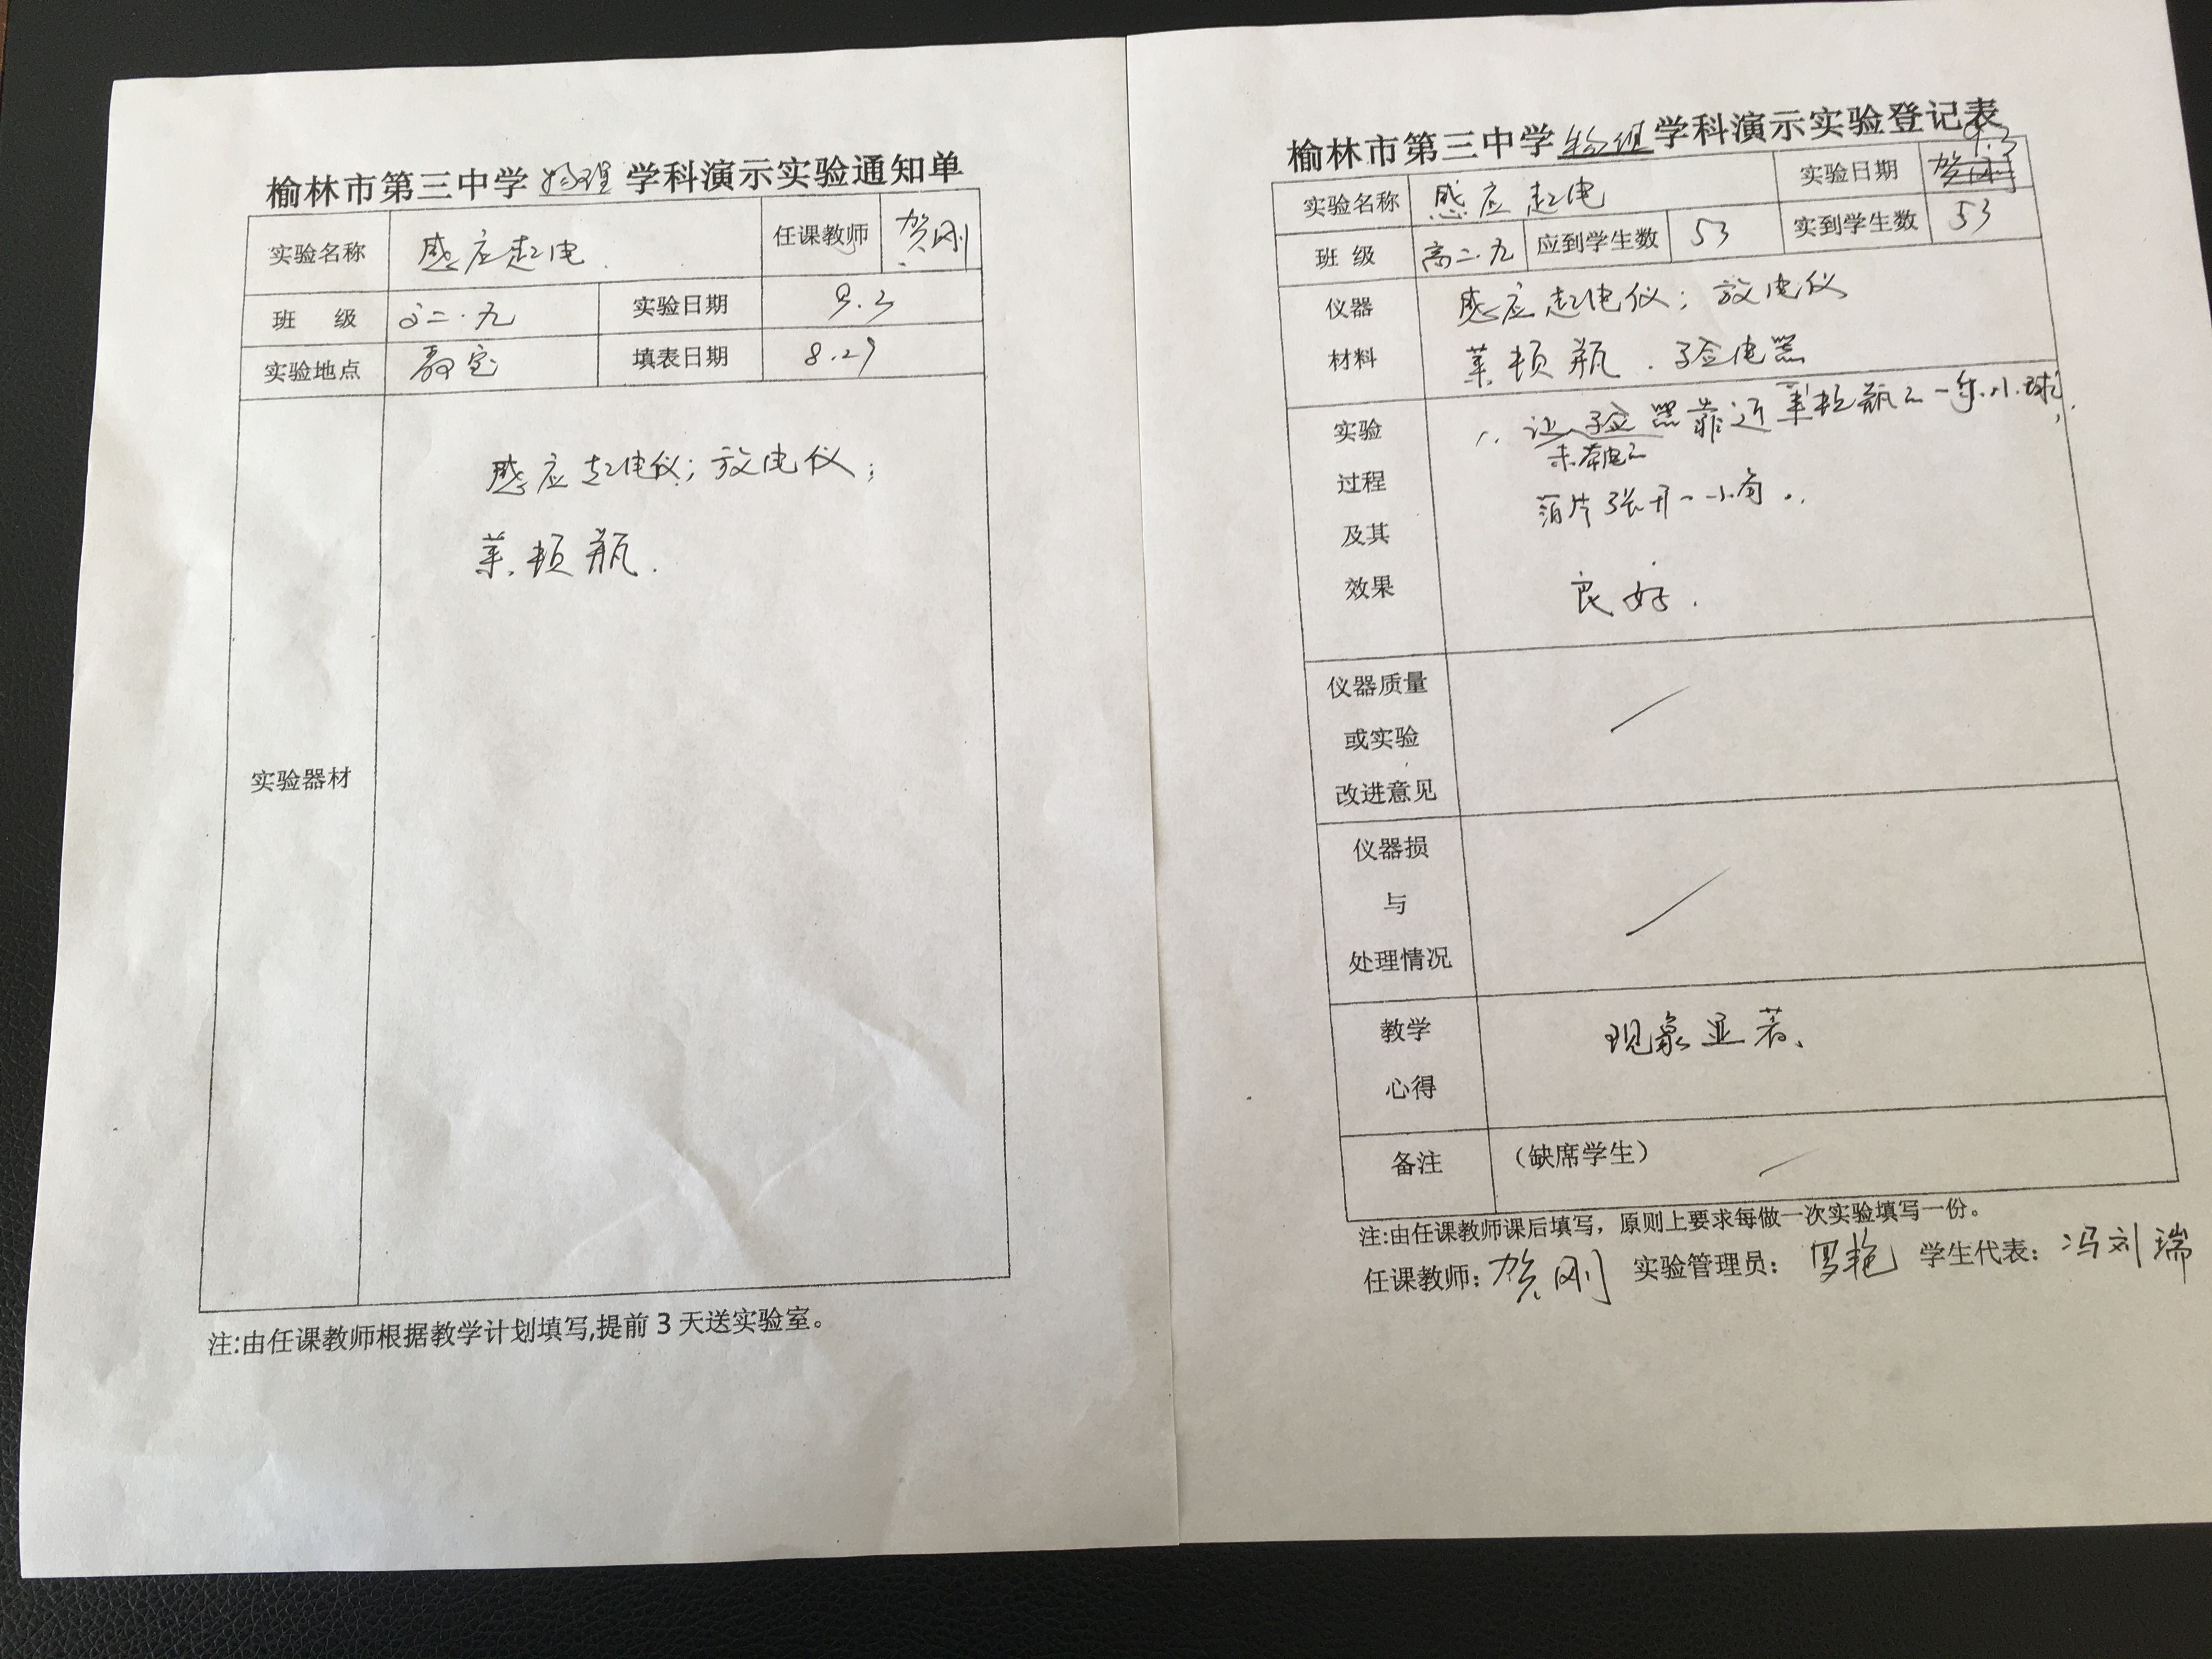 榆林市第三中学 物理 学科演示实验通知单
实验名称 感应起电 任课教师 贺刚
班 级 高二·九 实验日期 9.3
实验地点 教室 填表日期 8.29
实验器材
感应起电仪；放电仪；
莱顿瓶.
注:由任课教师根据教学计划填写,提前3天送实验室。
榆林市第三中学 物理 学科演示实验登记表
9.3
实验名称 感应起电 实验日期 贺刚
班 级 高二·九 应到学生数 53 实到学生数 53
仪器
材料
感应起电仪；放电仪
莱顿瓶.验电器
实验
过程
及其
效果
1. 让验电器靠近莱顿瓶之一金小球,
未带电之
箔片张开一小角.
良好.
仪器质量
或实验
改进意见
仪器损
与
处理情况
教学
心得
现象显著、
备注 （缺席学生）
注:由任课教师课后填写，原则上要求每做一次实验填写一份。
任课教师: 贺刚 实验管理员: 罗艳 学生代表: 冯刘瑞